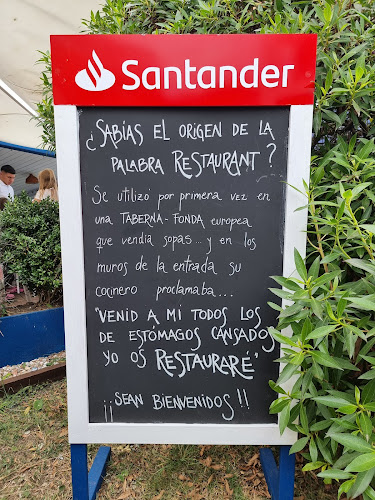 Santander
¿SABÍAS EL ORIGEN DE LA
PALABRA RESTAURANT?
Se utilizó por primera vez en
una TABERNA-FONDA europea
que vendía sopas... y en los
muros de la entrada su
cocinero proclamaba...
"VENID A MI TODOS LOS
DE ESTÓMAGOS CANSADOS
YO OS RESTAURARÉ"
¡¡SEAN BIENVENIDOS!!